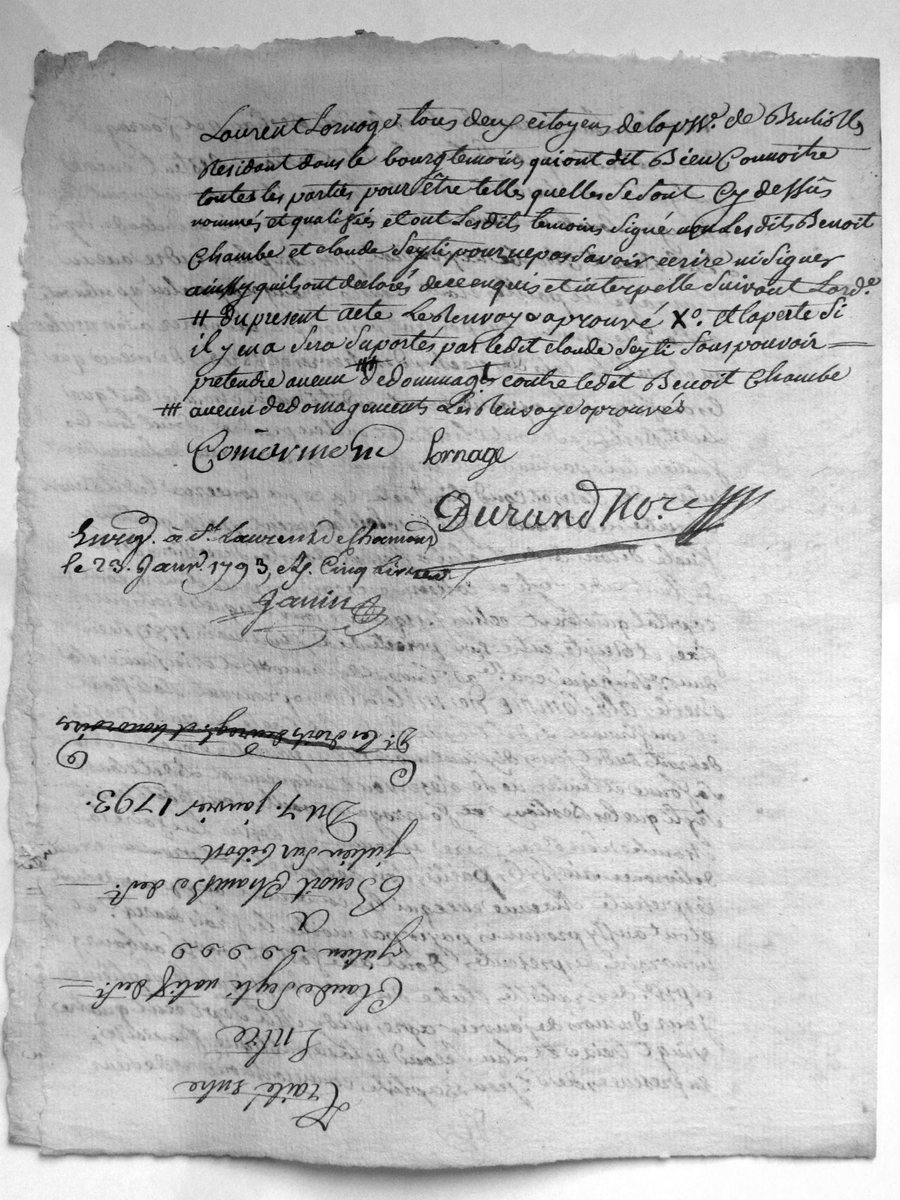 Laurent Lornage tous deux citoyens de la pss.e de Brulioles
Residant dans le bourg temoins qui ont dit Bien Connoitre
toutes les parties pour être telles quelles se sont Cy dessûs
nommés et qualifiés et ont Les dits temoins signé non Les dits Benoit
Chambe et claude Seyti pour ne pas savoir ecrire ni signer
ainssy quils ont declarés de ce enquis et interpellé suivant Lord.e
# du present acte Le Renvoy aprouvé X.o Et la perte si
il y en a sera suportés par ledit claude Seyti sans pouvoir
pretendre aucun # dedommagt contre ledit Benoit Chambe
# aucun dedomagements Les Renvoye aprouvés
Comarmond Lornage
Durand Nore
Enreg. à St. Laurent de Chamous.
le 23. Janv. 1793, Cinq Livres
Janin
Dt. les droits denregt. et honoraires
Du 7. janvier 1793.
julien sur bibost
Benoit Chambe de St.
A
julien
Claude Seyti natif de St.
Entre
Traité